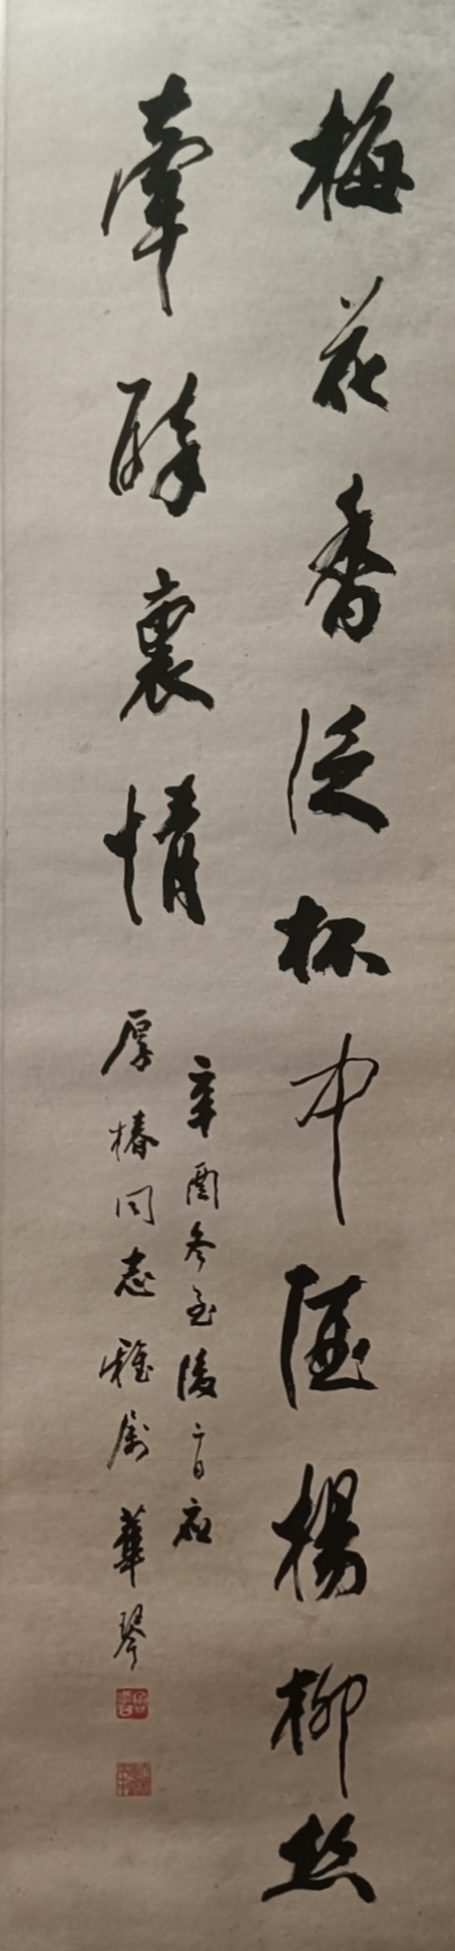 梅花香泛杯中酒楊柳絲
牽醉裏情
辛酉冬至後二日應
厚椿同志雅屬 華琴